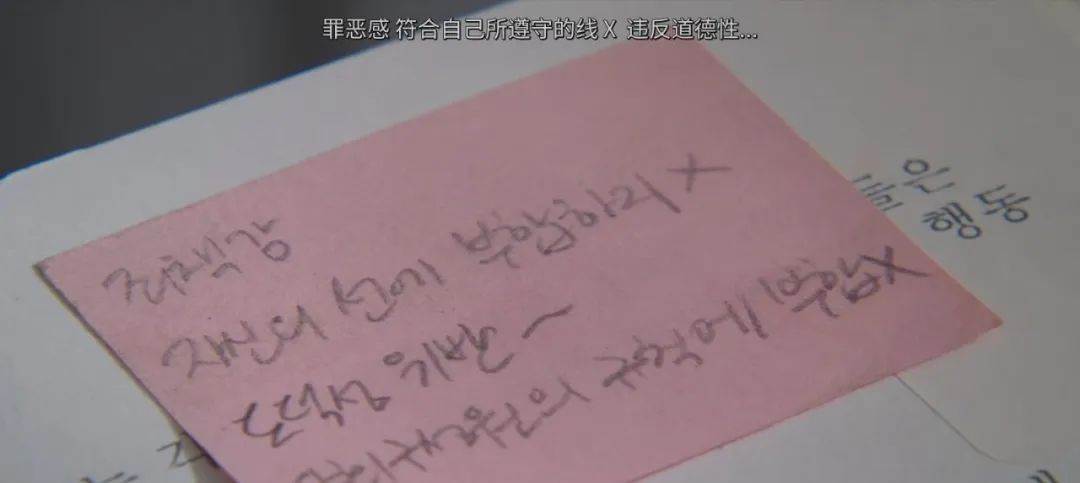 罪恶感 符合自己所遵守的线X 违反道德性...
죄책감
자신의 선에 부합하지 X
도덕성 위반~
규칙에 부합X
은
행동